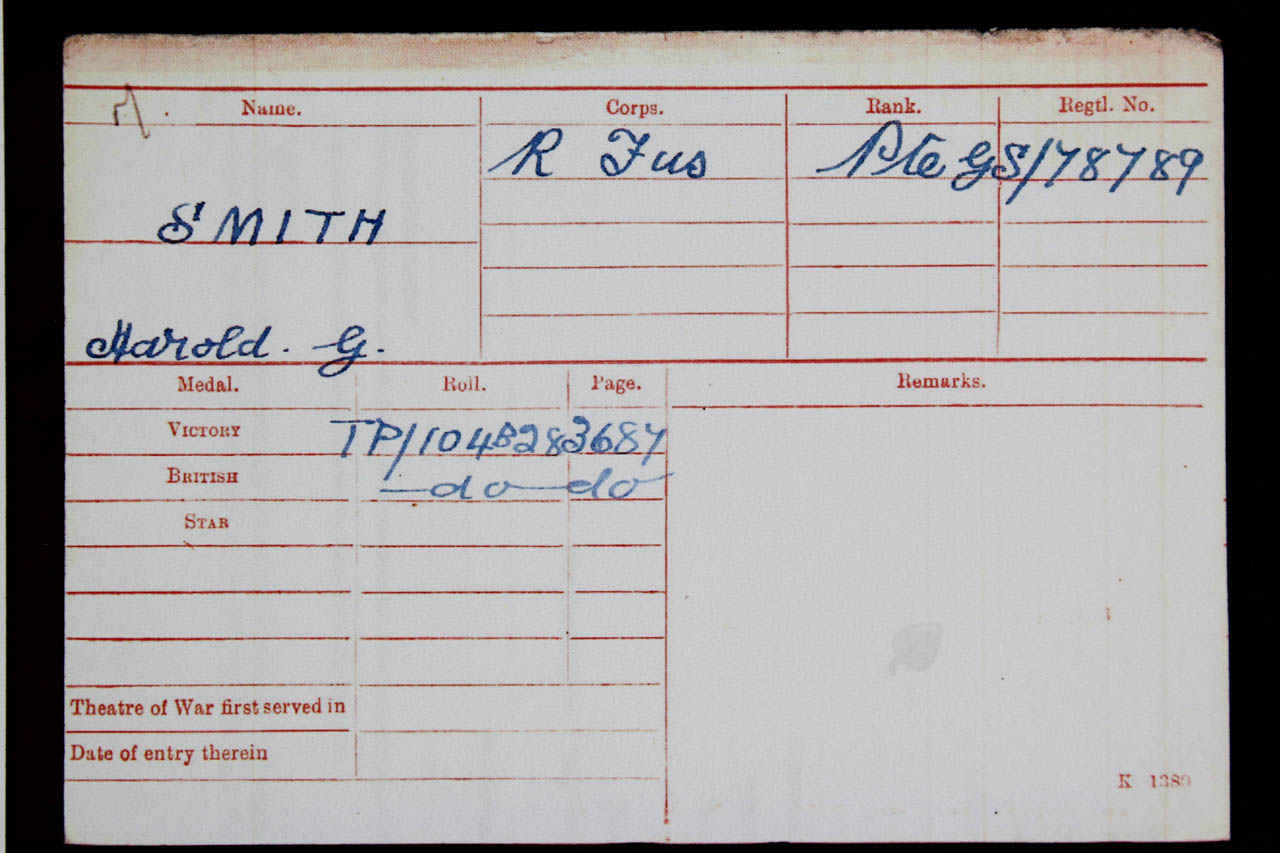 Name. Corps. Rank. Regtl. No.
R Fus Pte GS/78789
SMITH
Harold. G.
Medal. Roll. Page. Remarks.
VICTORY TP/104B28 3687
BRITISH —do— do
STAR
Theatre of War first served in
Date of entry therein
K 1380